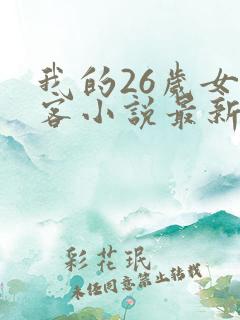 我的26岁女
客小说最新
彩花珉
未经同意禁止转载